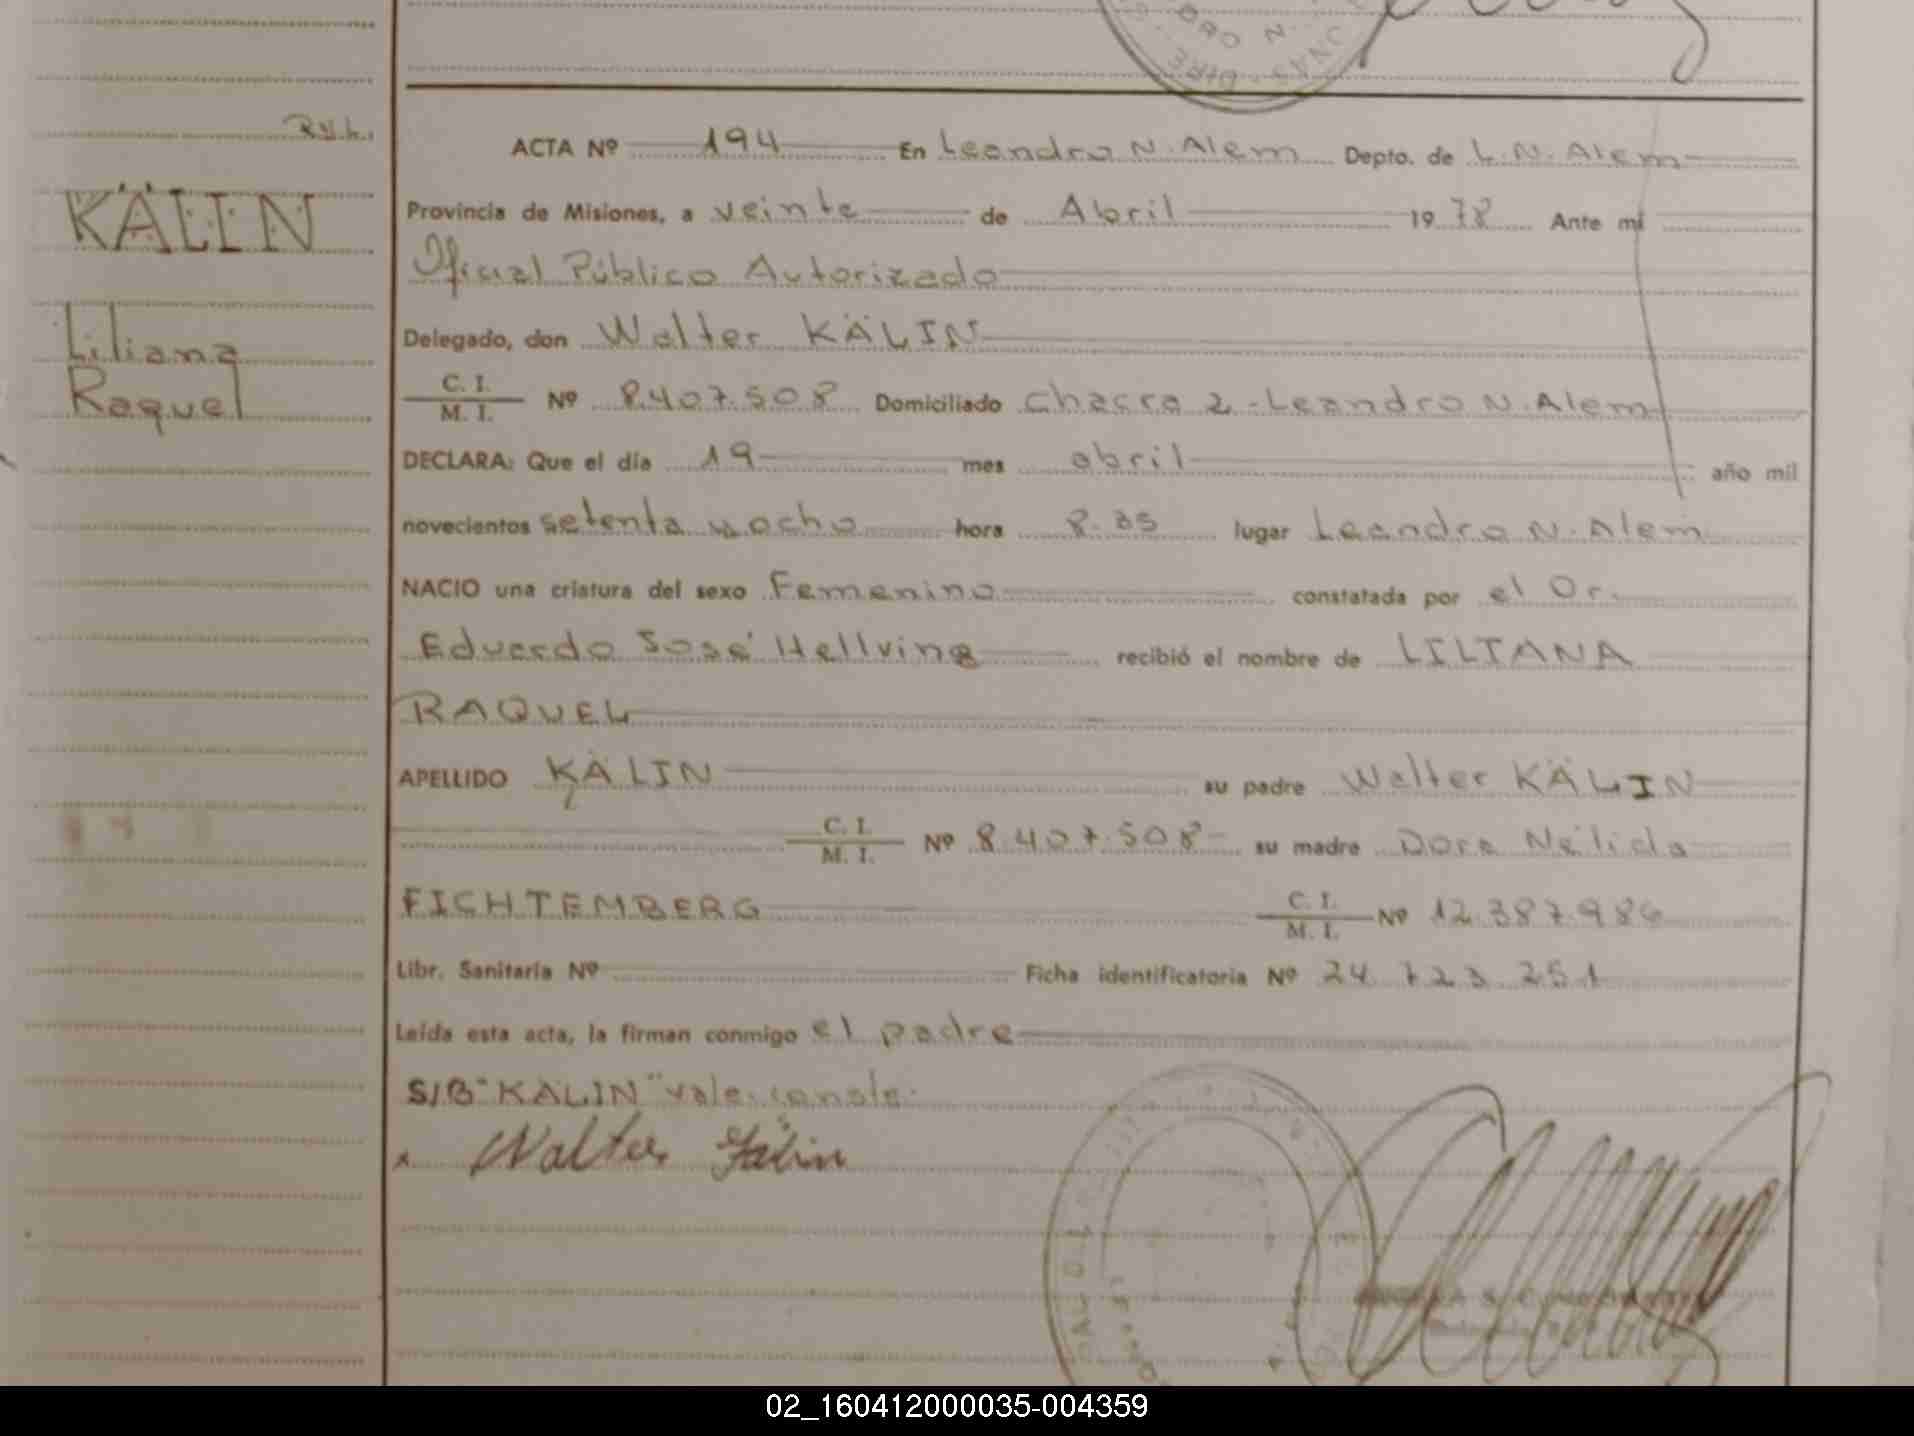 R.y.L.
KÄLIN
Liliana
Raquel
ACTA Nº 194 En Leandro N. Alem Depto. de L.N. Alem
Provincia de Misiones, a veinte de Abril 19 78 Ante mí
Oficial Público Autorizado
Delegado, don Walter KÄLIN
C. I. / M. I. Nº 8.407.508 Domiciliado Chacra 2 - Leandro N. Alem
DECLARA: Que el día 19 mes abril año mil
novecientos setenta y ocho hora 8.35 lugar Leandro N. Alem
NACIO una criatura del sexo Femenino constatada por el Dr.
Eduardo José Hellving recibió el nombre de LILIANA
RAQUEL
APELLIDO KÄLIN su padre Walter KÄLIN
C. I. / M. I. Nº 8.407.508 su madre Dora Nélida
FICHTEMBERG C. I. / M. I. Nº 12.387.986
Libr. Sanitaria Nº Ficha identificatoria Nº 24.723.251
Leída esta acta, la firman conmigo el padre
S/B "KÄLIN" vale. conste.
x Walter Kälin
02_160412000035-004359